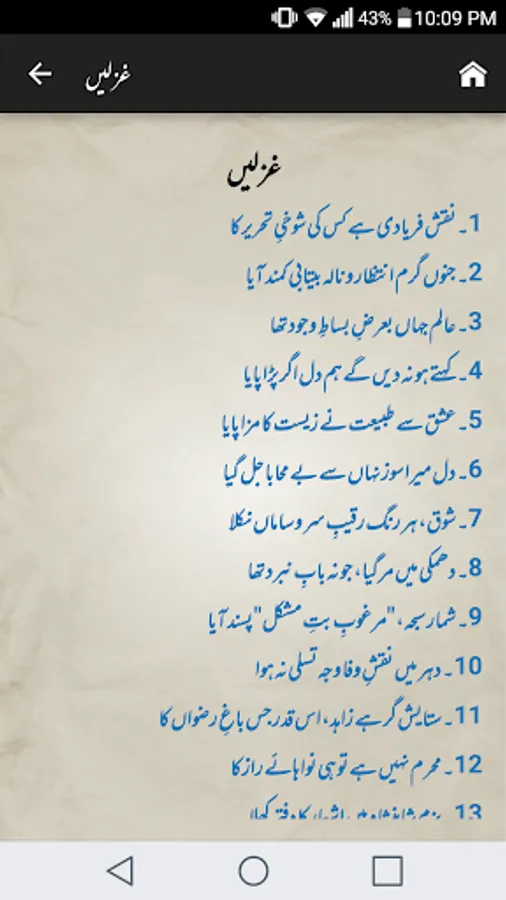 43% 10:09 PM
غزلیں
غزلیں
1۔ نقش فریادی ہے کس کی شوخیِ تحریر کا
2۔ جنوں گرم انتظار و نالہ بیتابی کمند آیا
3۔ عالم جہاں بعرضِ بساطِ وجود تھا
4۔ کہتے ہو نہ دیں گے ہم دل اگر پڑا پایا
5۔ عشق سے طبیعت نے زیست کا مزا پایا
6۔ دل میرا سوز نہاں سے بے محابا جل گیا
7۔ شوق، ہر رنگ رقیبِ سروساماں نکلا
8۔ دھمکی میں مر گیا، جو نہ بابِ نبرد تھا
9۔ شمار سبحہ، "مرغوبِ بتِ مشکل" پسند آیا
10۔ دہر میں نقشِ وفا وجہ تسلی نہ ہوا
11۔ ستایش گر ہے زاہد، اس قدر جس باغِ رضواں کا
12۔ محرم نہیں ہے تو ہی نوا ہائے راز کا
13۔